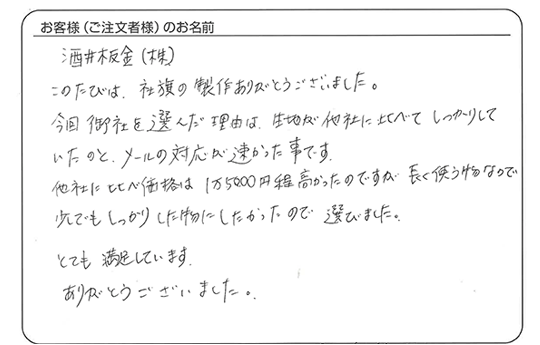 お客様（ご注文者様）のお名前
酒井板金（株）
このたびは、社旗の製作ありがとうございました。
今回御社を選んだ理由は、生地が他社に比べてしっかりして
いたのと、メールの対応が速かった事です。
他社に比べ価格は1万5000円程高かったのですが長く使う物なので
少しでもしっかりした物にしたかったので選びました。
とても満足しています。
ありがとうございました。